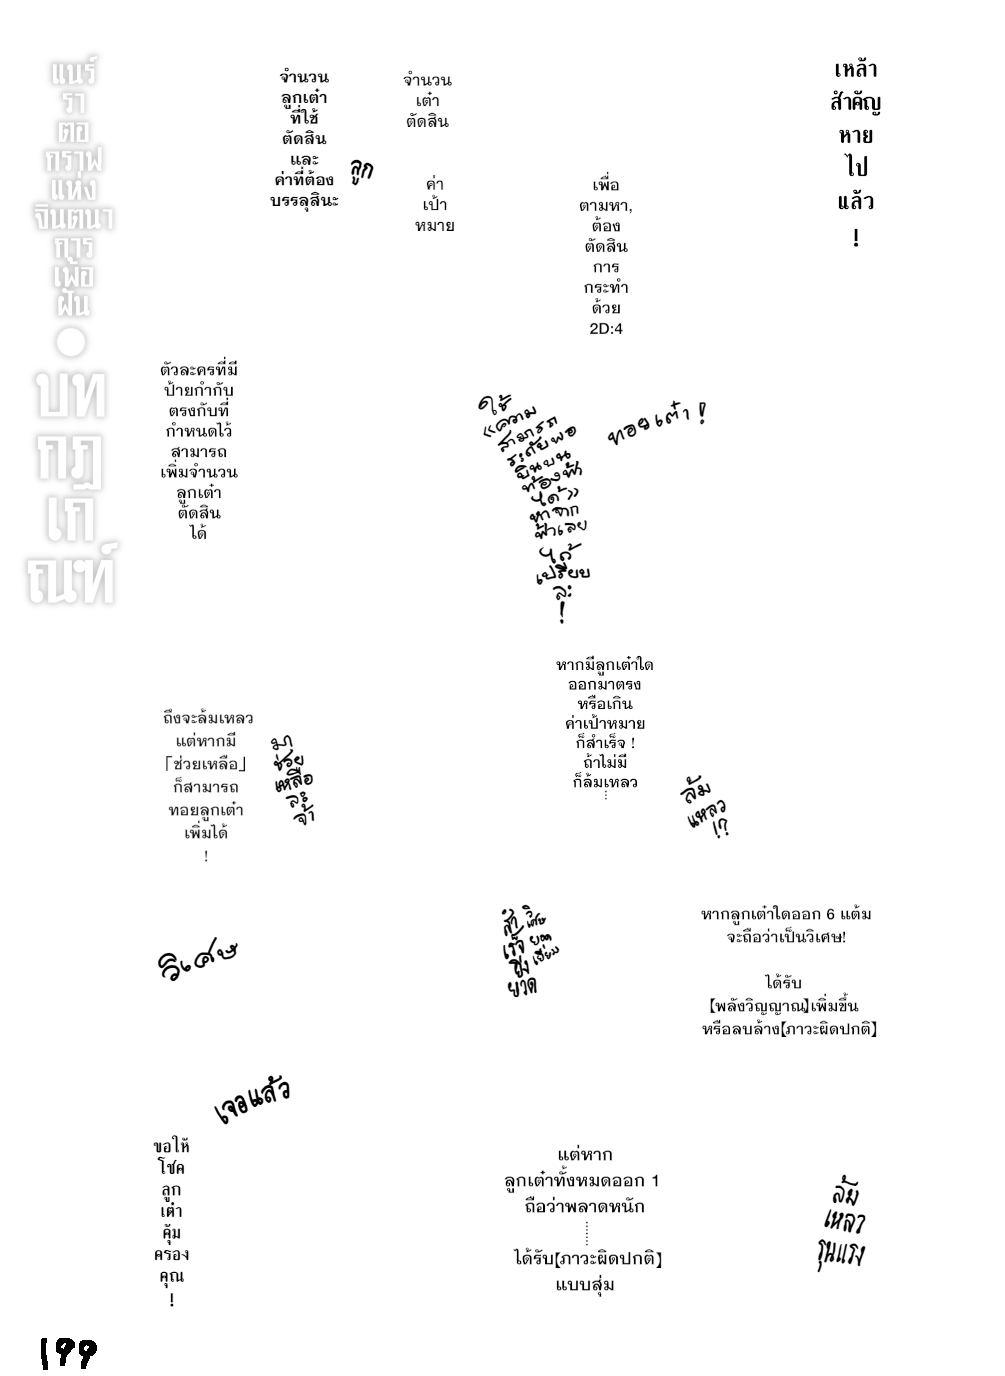 เหล้า
สำคัญ
หาย
ไป
แล้ว
!
เพื่อ
ตามหา,
ต้อง
ตัดสิน
การ
กระทำ
ด้วย
2D:4
จำนวน
เต๋า
ตัดสิน
ค่า
เป้า
หมาย
จำนวน
ลูกเต๋า
ที่ใช้
ตัดสิน
และ
ค่าที่ต้อง
บรรลุสินะ
ลูก
แนร์
รา
ตอ
กราฟ
แห่ง
จินตนา
การ
เพ้อ
ฝัน
●
บท
กฎ
เก
ณฑ์
ทอยเต๋า!
ใช้
«ความ
สามารถ
ระดับพอ
บินบน
ท้องฟ้า
ได้»
หาจาก
ฟ้าเลย
ได้
เปรียบ
ละ
!
ตัวละครที่มี
ป้ายกำกับ
ตรงกับที่
กำหนดไว้
สามารถ
เพิ่มจำนวน
ลูกเต๋า
ตัดสิน
ได้
หากมีลูกเต๋าใด
ออกมาตรง
หรือเกิน
ค่าเป้าหมาย
ก็สำเร็จ !
ถ้าไม่มี
ก็ล้มเหลว
…
ล้ม
เหลว
!?
มา
ช่วย
เหลือ
ละ
จ้า
ถึงจะล้มเหลว
แต่หากมี
「ช่วยเหลือ」
ก็สามารถ
ทอยลูกเต๋า
เพิ่มได้
!
หากลูกเต๋าใดออก 6 แต้ม
จะถือว่าเป็นวิเศษ!
ได้รับ
【พลังวิญญาณ】เพิ่มขึ้น
หรือลบล้าง【ภาวะผิดปกติ】
วิเศษ
ยอด
เยี่ยม
สำ
เร็จ
ยิ่ง
ยวด
วิเศษ
เจอแล้ว
ขอให้
โชค
ลูก
เต๋า
คุ้ม
ครอง
คุณ
!
แต่หาก
ลูกเต๋าทั้งหมดออก 1
ถือว่าพลาดหนัก
……
ได้รับ【ภาวะผิดปกติ】
แบบสุ่ม
ล้ม
เหลว
รุนแรง
199